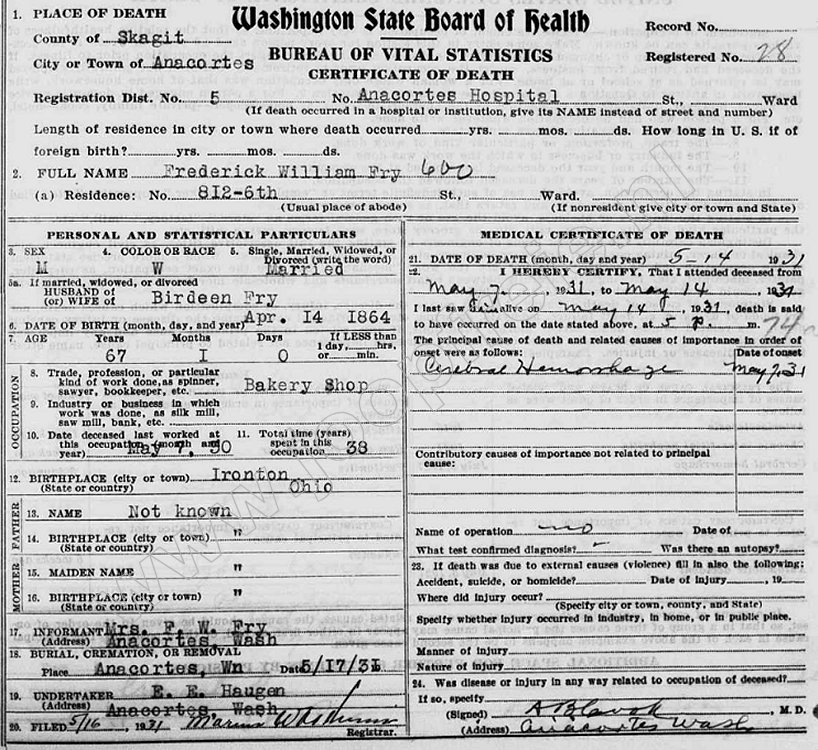 Washington State Board of Health
BUREAU OF VITAL STATISTICS
CERTIFICATE OF DEATH
Record No.
Registered No. 28
1. PLACE OF DEATH
County of Skagit
City or Town of Anacortes
Registration Dist. No. 5 No. Anacortes Hospital St., Ward
(If death occurred in a hospital or institution, give its NAME instead of street and number)
Length of residence in city or town where death occurred yrs. mos. ds. How long in U. S. if of
foreign birth? yrs. mos. ds.
2. FULL NAME Frederick William Fry 600
(a) Residence: No. 812-6th St., Ward.
(Usual place of abode) (If nonresident give city or town and State)
PERSONAL AND STATISTICAL PARTICULARS
3. SEX 4. COLOR OR RACE 5. Single, Married, Widowed, or
Divorced (write the word)
M W Married
5a. If married, widowed, or divorced
HUSBAND of
(or) WIFE of Birdeen Fry
6. DATE OF BIRTH (month, day, and year) Apr. 14 1864
7. AGE Years Months Days If LESS than
1 day, hrs.
or min.
67 1 0
OCCUPATION
8. Trade, profession, or particular
kind of work done, as spinner,
sawyer, bookkeeper, etc. Bakery Shop
9. Industry or business in which
work was done, as silk mill,
saw mill, bank, etc.
10. Date deceased last worked at
this occupation (month and
year) May 7, 30
11. Total time (years)
spent in this
occupation 38
12. BIRTHPLACE (city or town) Ironton
(State or country) Ohio
FATHER
13. NAME Not known
14. BIRTHPLACE (city or town) "
(State or country)
MOTHER
15. MAIDEN NAME "
16. BIRTHPLACE (city or town) "
(State or country)
17. INFORMANT Mrs. F. W. Fry
(Address) Anacortes, Wash
18. BURIAL, CREMATION, OR REMOVAL
Place Anacortes, Wn Date 5/17/31
19. UNDERTAKER E. E. Haugen
(Address) Anacortes, Wash
20. FILED 5/16, 1931
Registrar.
MEDICAL CERTIFICATE OF DEATH
21. DATE OF DEATH (month, day and year) 5-14 1931
22. I HEREBY CERTIFY, That I attended deceased from
May 7, 1931, to May 14, 1931
I last saw him alive on May 14, 1931, death is said
to have occurred on the date stated above, at 5 P. m.
74a
The principal cause of death and related causes of importance in order of
onset were as follows: Date of onset
Cerebral Hemorrhage May 7-31
Contributory causes of importance not related to principal
cause:
Name of operation no Date of
What test confirmed diagnosis? Was there an autopsy?
23. If death was due to external causes (violence) fill in also the following:
Accident, suicide, or homicide? Date of injury, 19
Where did injury occur?
(Specify city or town, county, and State)
Specify whether injury occurred in industry, in home, or in public place.
Manner of injury
Nature of injury
24. Was disease or injury in any way related to occupation of deceased?
If so, specify
(Signed) M. D.
(Address) Anacortes Wash